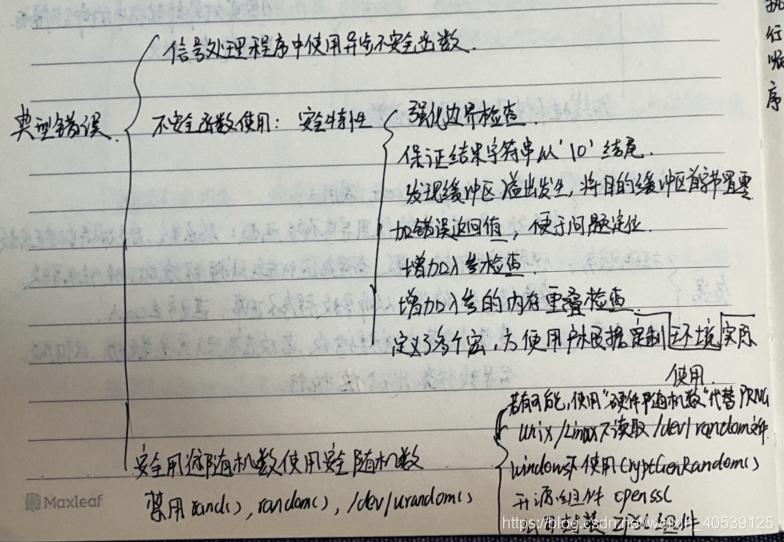 信号处理程序中使用异步不安全函数.
典型错误
不安全函数使用: 安全特性
强化边界检查.
保证结果字符串以'\0'结尾.
发现缓冲区溢出发生, 将目的缓冲区首字节置零
加错误返回值, 便于问题定位.
增加入参检查
增加入参的内存重叠检查.
定义了多个宏, 方便用户根据定制环境实际
使用.
若有可能, 使用"硬件随机数"代替PRNG
Unix/Linux下读取/dev/random文件.
windows下使用CryptGenRandom()
开源组件 openssl
组件
安全用途随机数使用安全随机数
禁用rand(), random(), /dev/urandom()
执
行
顺
序
Maxleaf